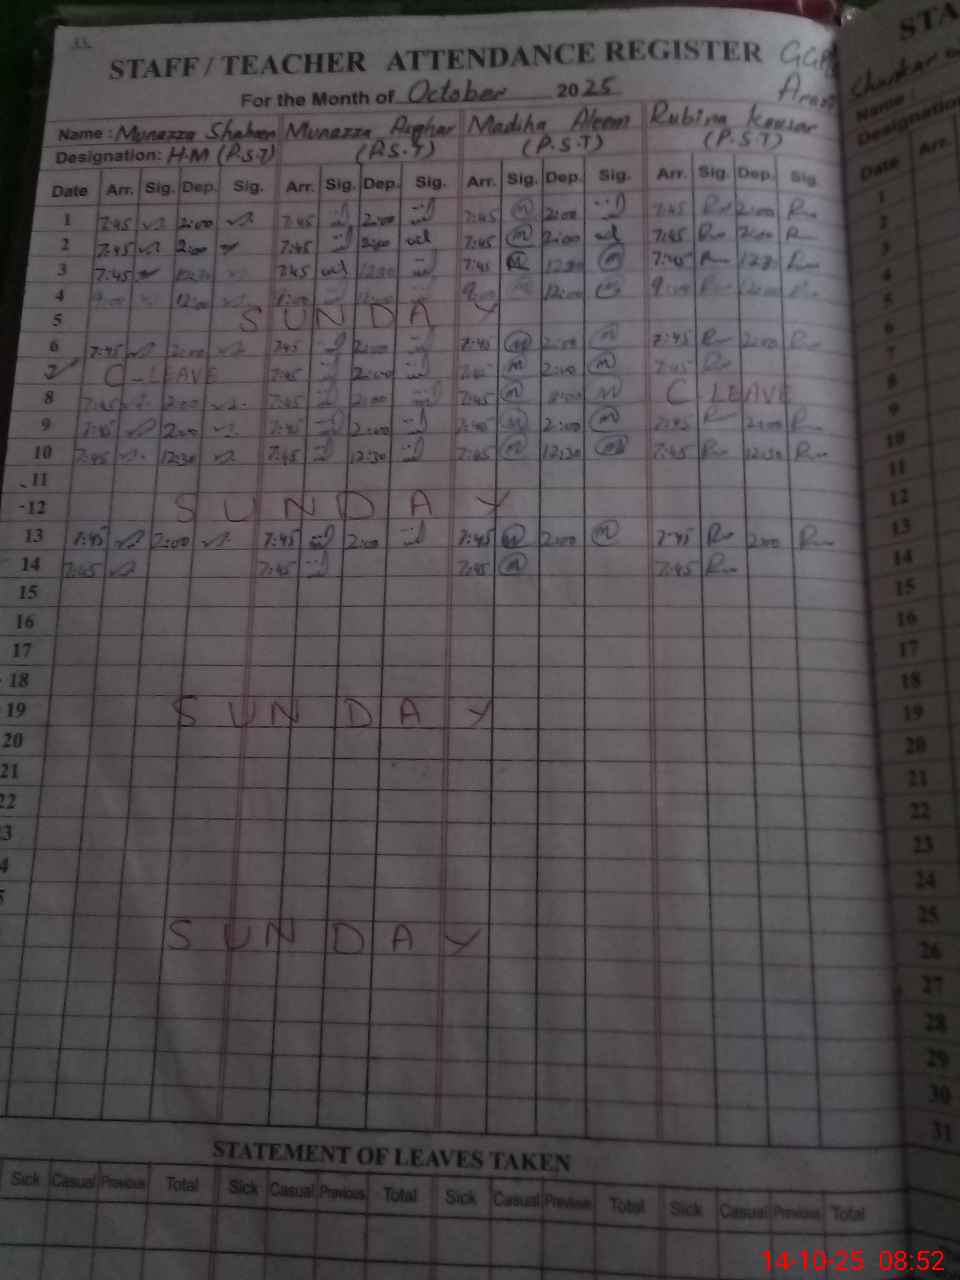 STAFF / TEACHER ATTENDANCE REGISTER
For the Month of October 2025
Name : Munazza Shaheen Munazza Asghar Madiha Aleem Rubina Kausar
Designation: H.M (P.S.T) (P.S.T) (P.S.T) (P.S.T)
Date Arr. Sig. Dep. Sig. Arr. Sig. Dep. Sig. Arr. Sig. Dep. Sig. Arr. Sig. Dep. Sig.
1 7:45 2:00 7:45 2:00 7:45 2:00 7:45 2:00
2 7:45 2:00 7:45 2:00 7:45 2:00 7:45 2:00
3 7:45 12:30 7:45 12:30 7:45 12:30 7:45 12:30
4 9:00 12:00 9:00 12:00 9:00 12:00 9:00 12:00
5 SUNDAY
6 7:45 2:00 7:45 2:00 7:45 2:00 7:45 2:00
7 C-LEAVE 7:45 2:00 7:45 2:00 7:45
8 7:45 2:00 7:45 2:00 7:45 2:00 C LEAVE
9 7:45 2:00 7:45 2:00 7:45 2:00 7:45 2:00
10 7:45 12:30 7:45 12:30 7:45 12:30 7:45 12:30
11
12 SUNDAY
13 7:45 2:00 7:45 2:00 7:45 2:00 7:45 2:00
14 7:45 7:45 7:45 7:45
15
16
17
18
19 SUNDAY
20
21
22
3
4
5
SUNDAY
STATEMENT OF LEAVES TAKEN
Sick Casual Previous Total Sick Casual Previous Total Sick Casual Previous Total Sick Casual Previous Total
STA
Name :
Designation
Date Arr.
1
2
3
4
5
6
7
8
9
10
11
12
13
14
15
16
17
18
19
20
21
22
23
24
25
26
27
28
29
30
31
14-10-25 08:52